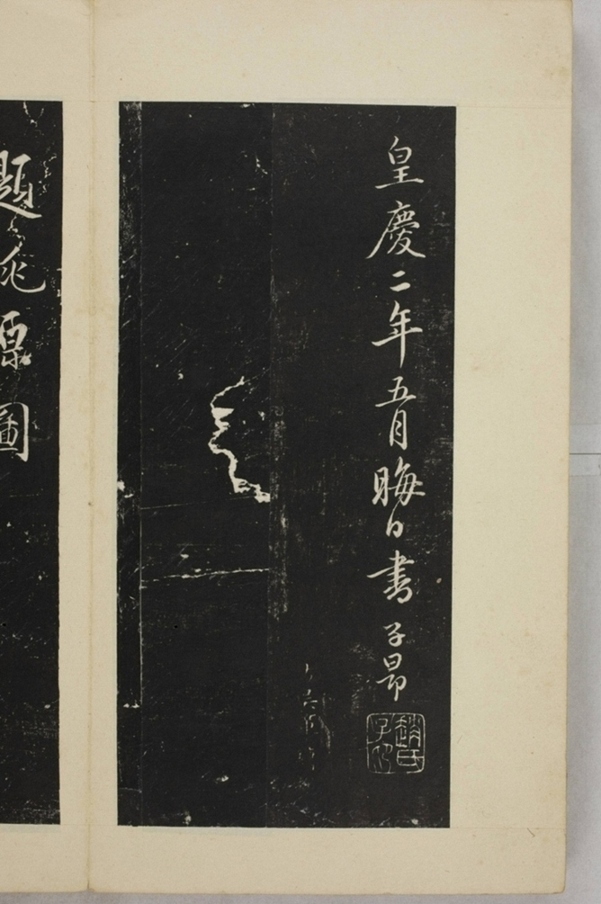 皇慶二年五月晦日書子昂
趙氏子昂
題桃源圖